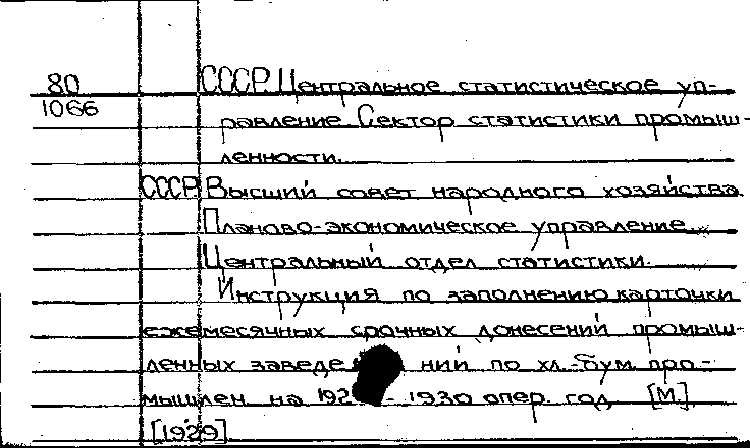 80 СССР. Центральное статистическое уп-
1066
равление. Сектор статистики промыш-
ленности.
СССР. Высший совет народного хозяйства
Планово-экономическое управление.
Центральный отдел статистики.
Инструкция по заполнению карточки
ежемесячных срочных донесений промыш-
ленных заведений по хл.-бум. про-
мышлен на 192 - 1930 опер. год [М.]
[1929]